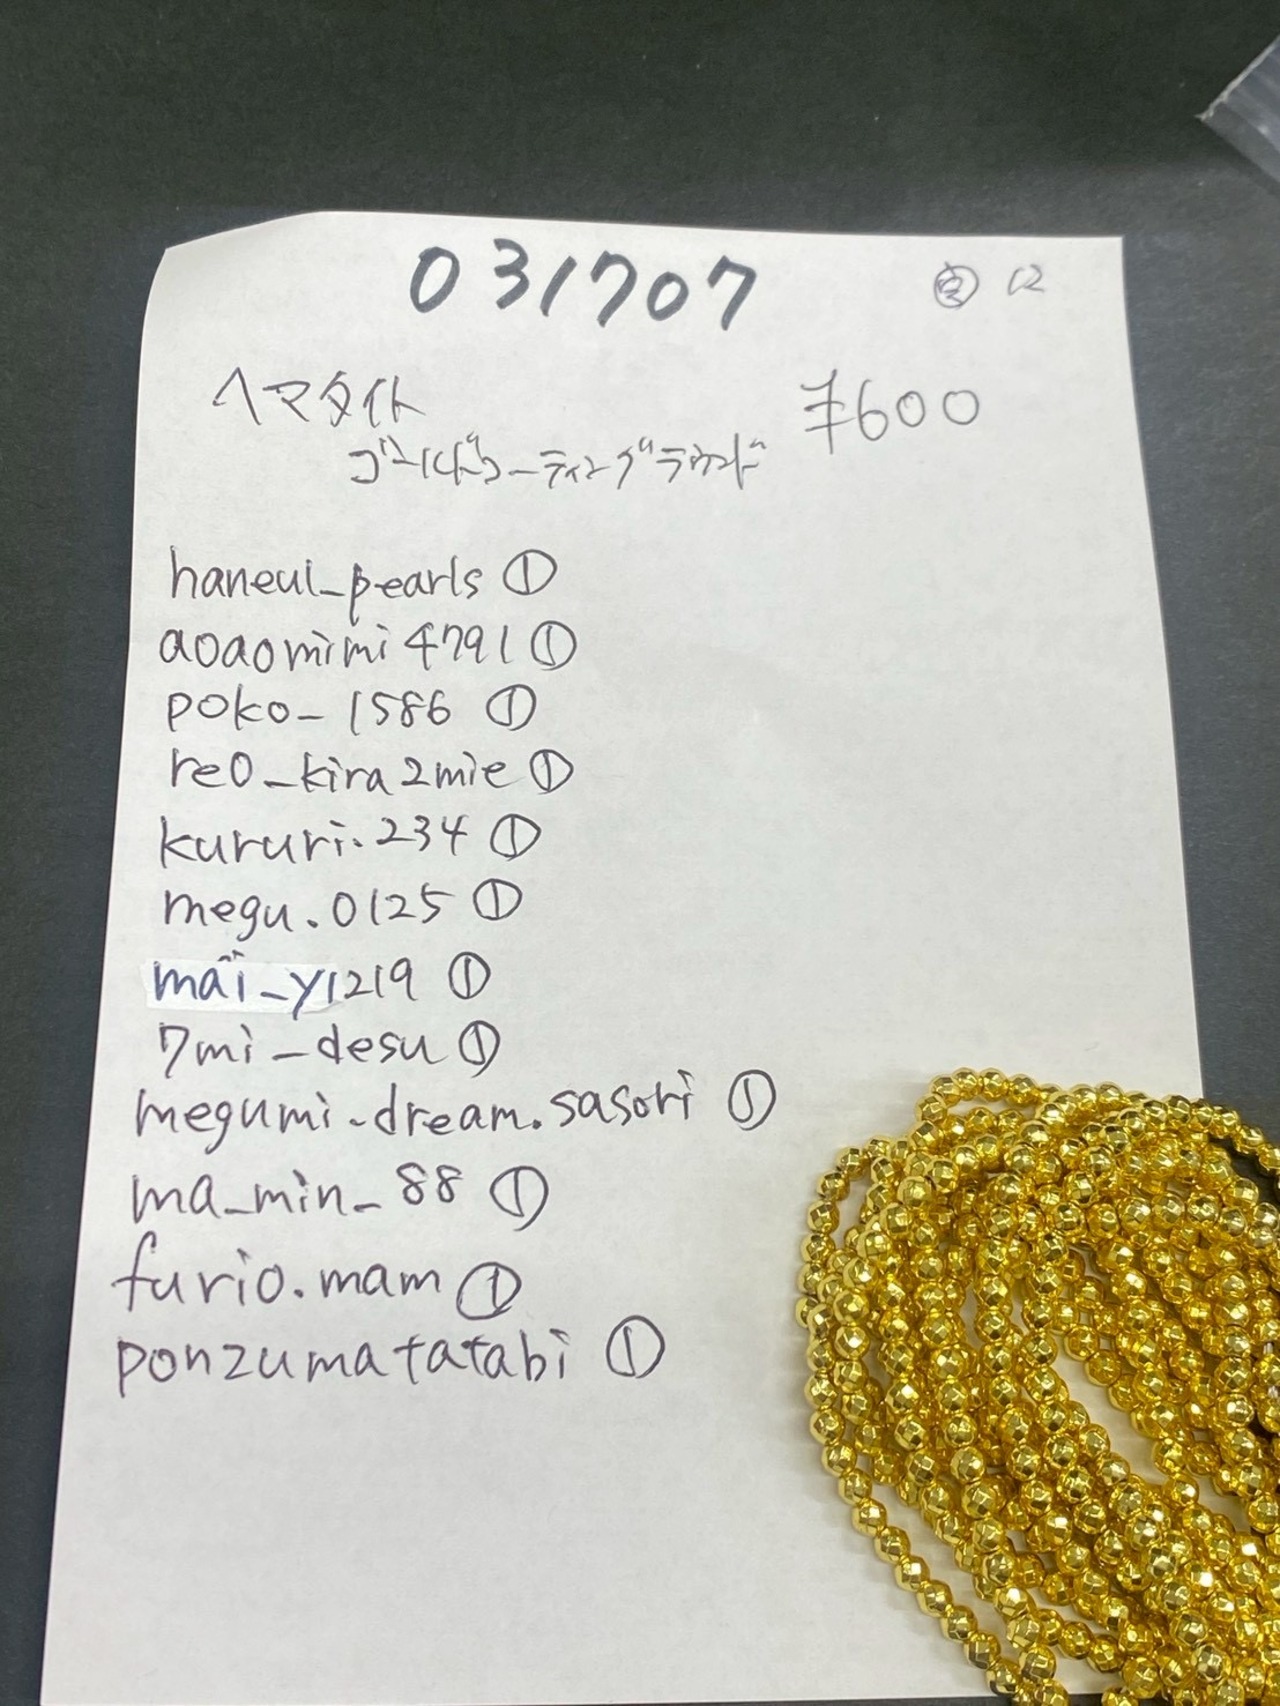 031707
12
ヘマタイト
¥600
ゴールドコーティングラウンド
haneul_pearls ①
aoaomimi4791 ①
poko_1586 ①
re0_kira2mie ①
kururi.234 ①
megu.0125 ①
mai_y1219 ①
7mi_desu ①
megumi.dream.sasori ①
ma_min_88 ①
furio.mam ①
ponzumatatabi ①